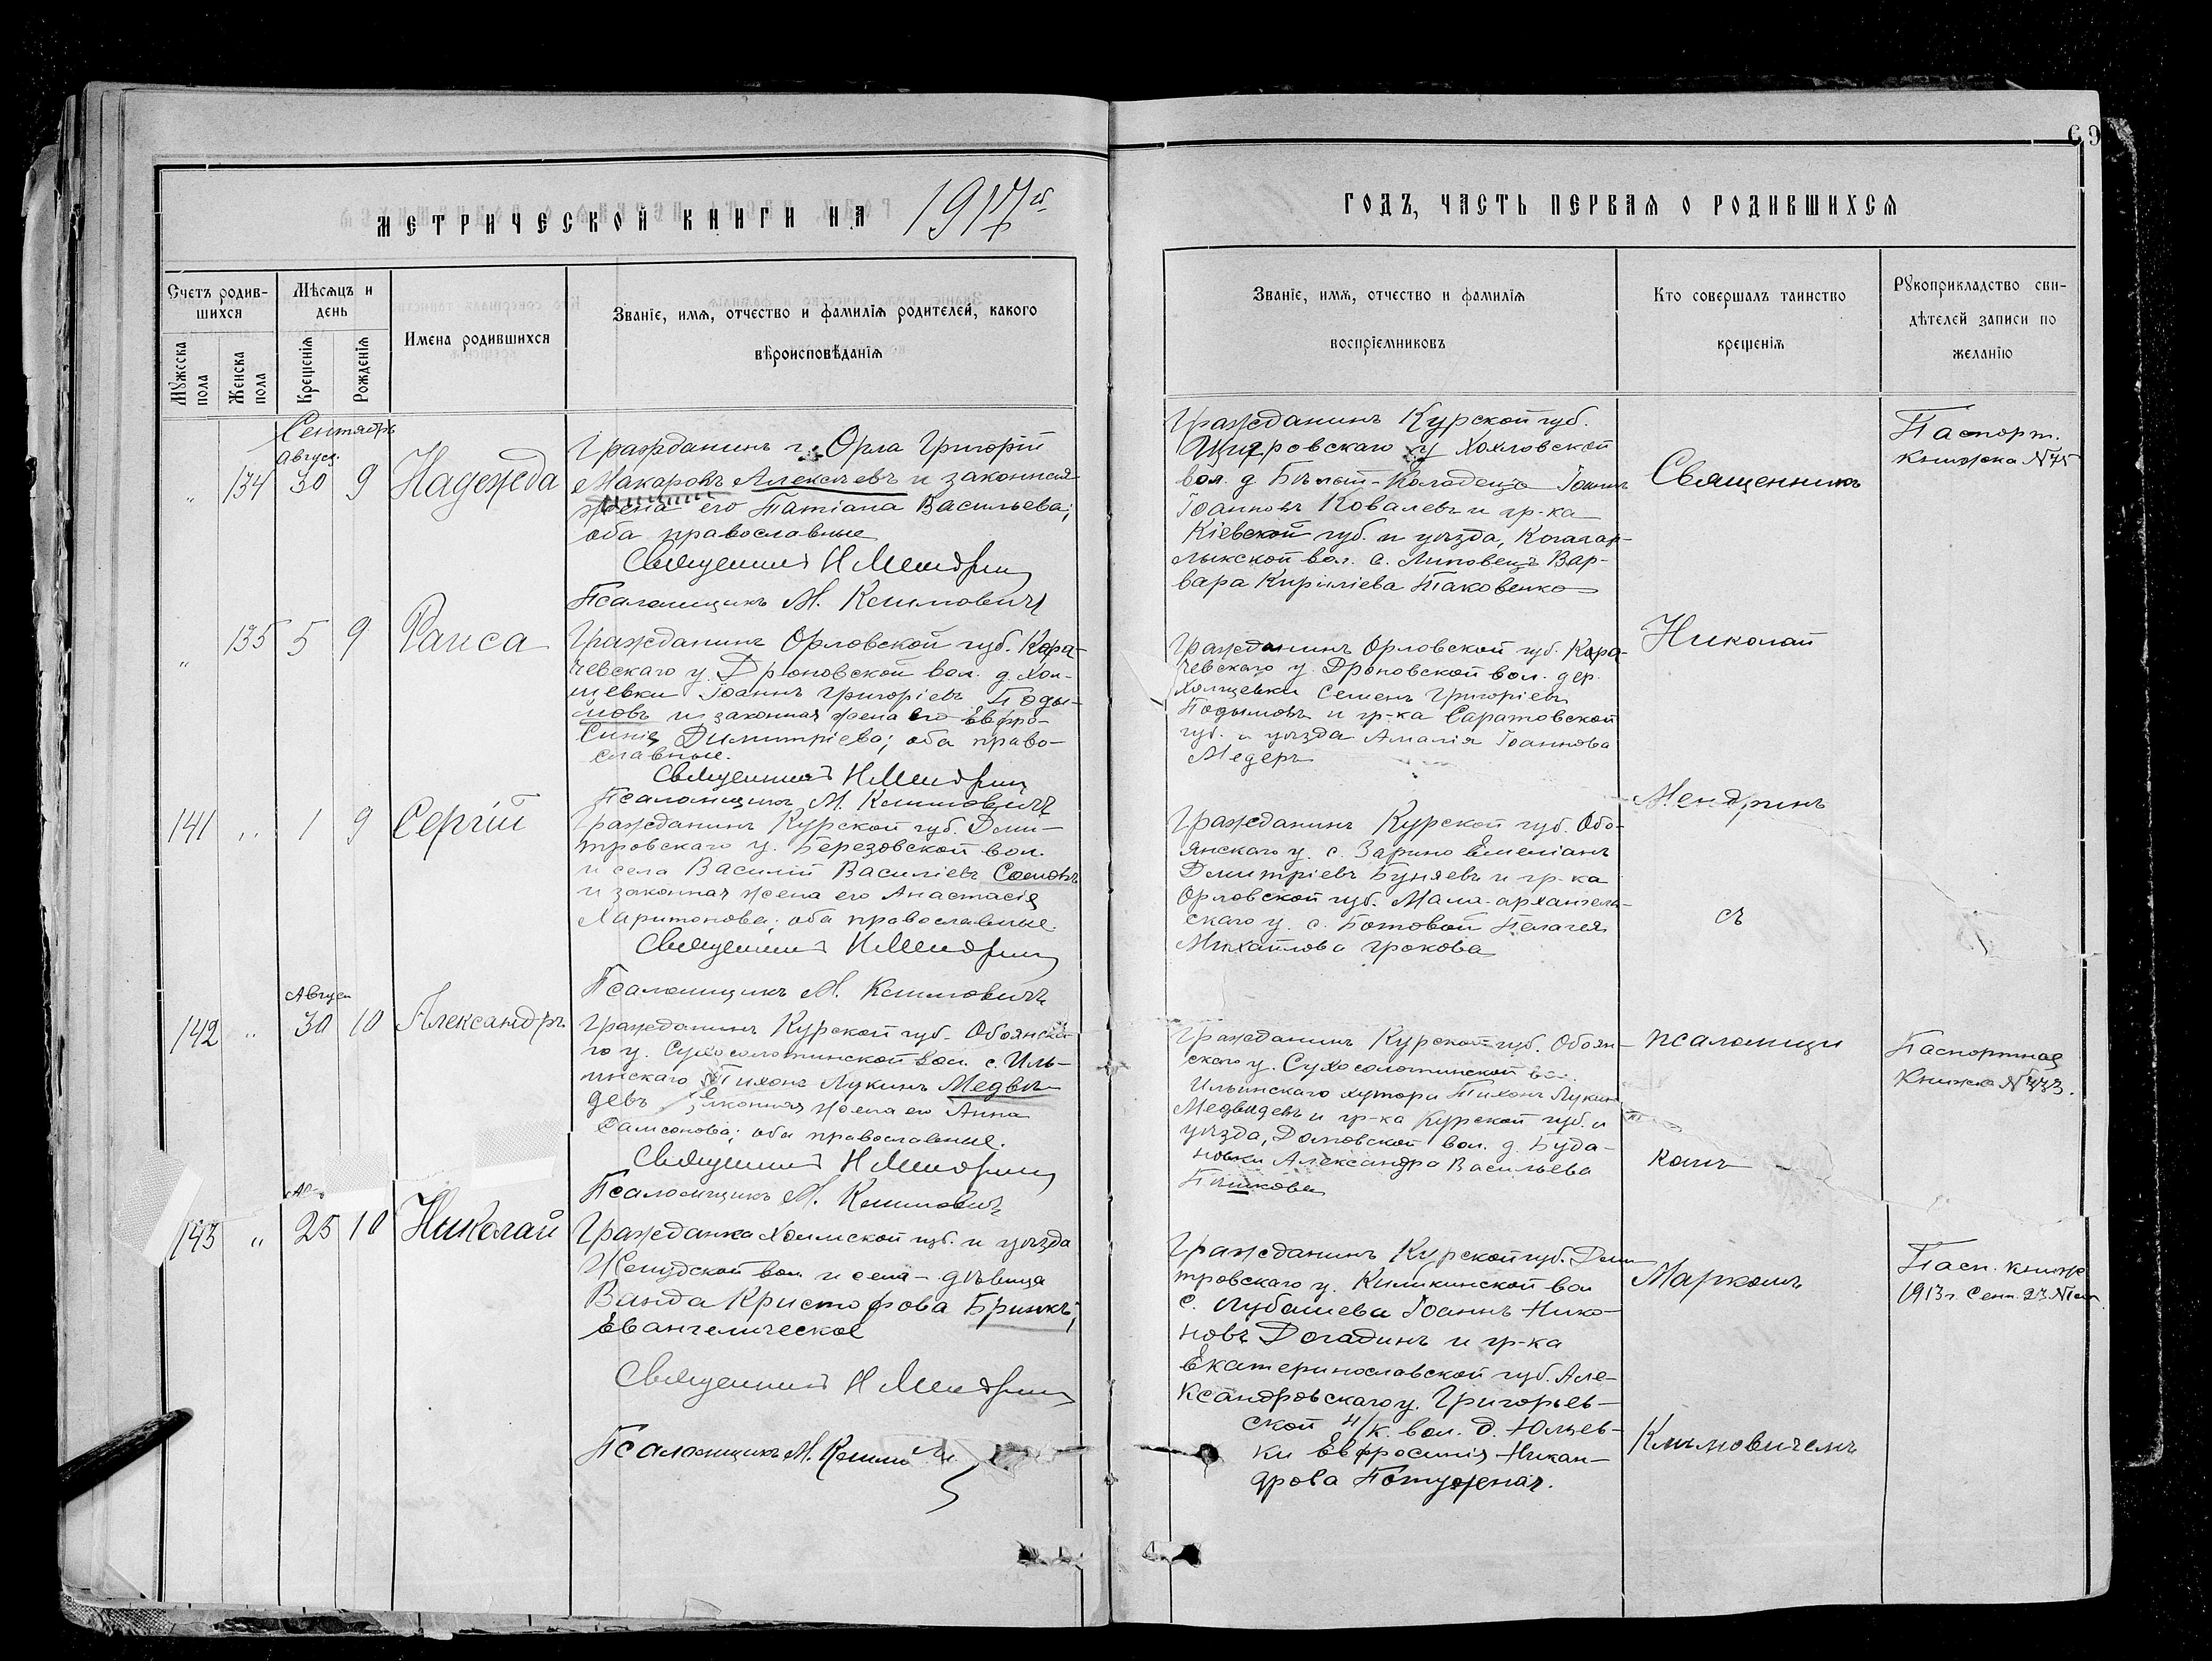 69
МЕТРИЧЕСКОЙ КНИГИ НА 1917й
ГОДЪ, ЧАСТЬ ПЕРВАЯ О РОДИВШИХСЯ
Счетъ родив-
шихся
Мужеска
пола
Женска
пола
Мѣсяцъ и
день
Крещенія
Рожденія
Имена родившихся
Званіе, имя, отчество и фамилія родителей, какого
вѣроисповѣданія
Званіе, имя, отчество и фамилія
воспріемниковъ
Кто совершалъ таинство
крещенія
Рукоприкладство сви-
дѣтелей записи по
желанію
Сентябрь
Август.
„ 134 30 9 Надежда
Гражданинъ г. Орла Григорій
Макаровъ Алексѣевъ и законная
жена его Татіана Васильева;
оба православные
Священникъ Н Мендринъ
Псаломщикъ М. Климовичъ
Гражданинъ Курской губ.
Щигровскаго у Хохловской
вол. д Бѣлый-Колодецъ Іоаннъ
Іоанновъ Ковалевъ и гр-ка
Кіевской губ. и уѣзда, Кагар-
лыкской вол. с. Липовецъ Вар-
вара Кириліева Яковенко
Паспорт.
книжка N 75
„ 135 5 9 Раиса
Гражданинъ Орловской губ. Кара-
чевскаго у. Дроновской вол. д. Хол-
щевки Іоаннъ Григоріевъ Поды-
мовъ и законная жена его Евфро-
синія Димитріева; оба право-
славные.
Священникъ Н Мендринъ
Псаломщикъ М. Климовичъ
Гражданинъ Орловской губ. Кара-
чевскаго у. Дроновской вол. дер.
Холщевки Семенъ Григоріевъ
Подымовъ и гр-ка Саратовской
губ. и уѣзда Амалія Іоаннова
Медеръ
141 „ 1 9 Сергій
Гражданинъ Курской губ. Дми-
тровскаго у. Березовской вол.
и села Василій Василіевъ Сомовъ
и законная жена его Анастасія
Харитонова; оба православные.
Священникъ Н Мендринъ
Псаломщикъ М. Климовичъ
Гражданинъ Курской губ. Обо-
янскаго у. с. Зорино Емеліанъ
Димитріевъ Буняевъ и гр-ка
Орловской губ. Мало-архангель-
скаго у. с. Ботовой Пелагея
Михаилова Громова
Август
142 „ 30 10 Александръ
Гражданинъ Курской губ. Обоянска-
го у. Сухосолотинской вол. с. Иль-
инскаго Тихонъ Лукинъ Медвѣ-
девъ и законная жена его Анна
Самсонова; оба православные.
Священникъ Н Мендринъ
Псаломщикъ М. Климовичъ
Гражданинъ Курской губ. Обоян-
скаго у. Сухосолотинской вол.
Ильинскаго хутора Тихонъ Лукинъ
Медвѣдевъ и гр-ка Курской губ. и
уѣзда, Дьяковской вол. д. Буда-
новки Александра Васильева
Пашкова
Паспортная
Книжка N 333.
143 „ 25 10 Николай
Гражданка Холмской губ. и уѣзда
вол. и села - дѣвица
Ванда Кристофова Бринкъ;
Евангелическое
Священникъ Н Мендринъ
Псаломщикъ М. Климовичъ
Гражданинъ Курской губ. Дми-
тровскаго у. вол
с. Лубашева Іоаннъ Нико-
новъ Догадинъ и гр-ка
Екатеринославской губ. Але-
ксандровскаго у. Григорьев-
ской вол. д. Юльев-
ки Евфросинія Никан-
дрова
Пасп. книж
1913 г. Сент. 23 N
Священникъ
Николай
Мендринъ
съ
псаломщи
комъ
Маркомъ
Климовичемъ